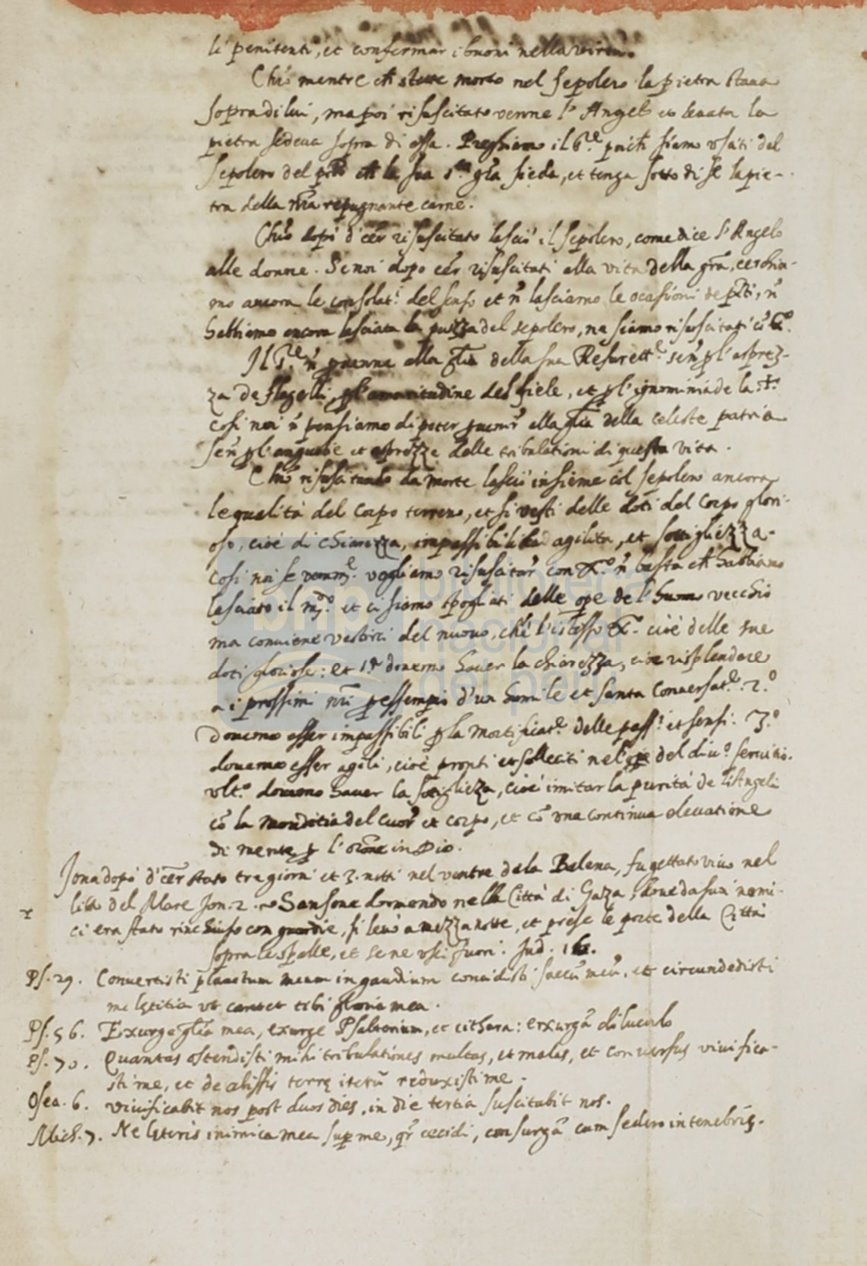 li penitenti, et confermar i buoni nella virtu.
Chro mentre ch stette morto nel sepolcro la pietra staua
sopra di lui, ma poi risuscitato venne l'Angelo et leuata la
pietra sedeua sopra di essa. Preghiamo il che siamo usciti del
sepolcro del ch la sua sieda, et tenga sotto di se la pie-
tra della nrã repugnante carne.
Chro dopò d'esser risuscitato lasciò il sepolcro, come dice l'Angelo
alle donne. Se noi dopo esser risuscitati alla vita della grã,
mo ancora le consolat.i del senso et nõ lasciamo le occasioni de nõ
habbiamo ancora lasciata la puzza del sepolcro, ne siamo risuscitati cõ
Il nõ peruenne alla della sua Resurett.e senõ p l'asprez-
za de flagelli, p l'amaritudine del fiele, et p l'ignominia de la †.
cosi noi nõ pensiamo di poter alla della celeste patria
senõ p l'angustie et asprezze delle tribulationi di questa vita.
Chro risuscitando da morte lasciò insieme col sepolcro ancora
le qualità del corpo terreno, et si vestì delle doti del corpo glori-
oso, cioè di chiarezza, impassibilità agilita, et sottigliezza.
Cosi noi se vogliamo risuscitar con nõ basta ch habbiamo
lasciato il et ci siamo spogliati delle ope de l'huomo vecchio
ma conuiene vestirci del nuouo, ch'è l'istesso cioè delle sue
doti gloriose: et douemo hauer la chiarezza, cioè risplendere
a i prossimi nrĩ p essempio d'un humile et santa conuersat.e 2.º
douemo esser impassibili p la mortificat.e delle pass.i et sensi. 3.º
douemo esser agili, cioè pronti et solleciti nel del diu.º seruitio.
ult.º douemo hauer la sotigliezza, cioè imitar la purità de li Angeli
cõ la monditia del cuor et corpo, et cõ una continua eleuatione
di mente p l'orõne in Dio.
Jona dopò d'esser stato tre giorni et 3. notti nel ventre dela Balena, fu gettato viuo nel
lito del Mare Jon. 2. Sansone dormendo nella Città di Gaza doue da suoi nemi-
ci era stato rinchiuso con guardie, si leuò a mezza notte, et prese le porte della Città
sopra le spalle, et se ne uscì fuori. Jud. 16.
Ps. 29. Conuertisti planctum meum in gaudium concidisti saccũ meũ, et circundedisti
me lętitia ut cantet tibi gloria mea.
Ps. 56. Exurge glĩa mea, exurge Psalterium, et cithara: exurgã diluculo
Ps. 70. Quantas ostendisti mihi tribulationes multas, et malas, et conuersus viuifica-
sti me, et de abissis terrę iterũ reduxisti me.
Osea. 6. viuificabit nos post duos dies, in die tertia suscitabit nos.
Mich. 7. Ne lęteris inimica mea sup me, qr cecidi, consurgã cum sedero in tenebris.